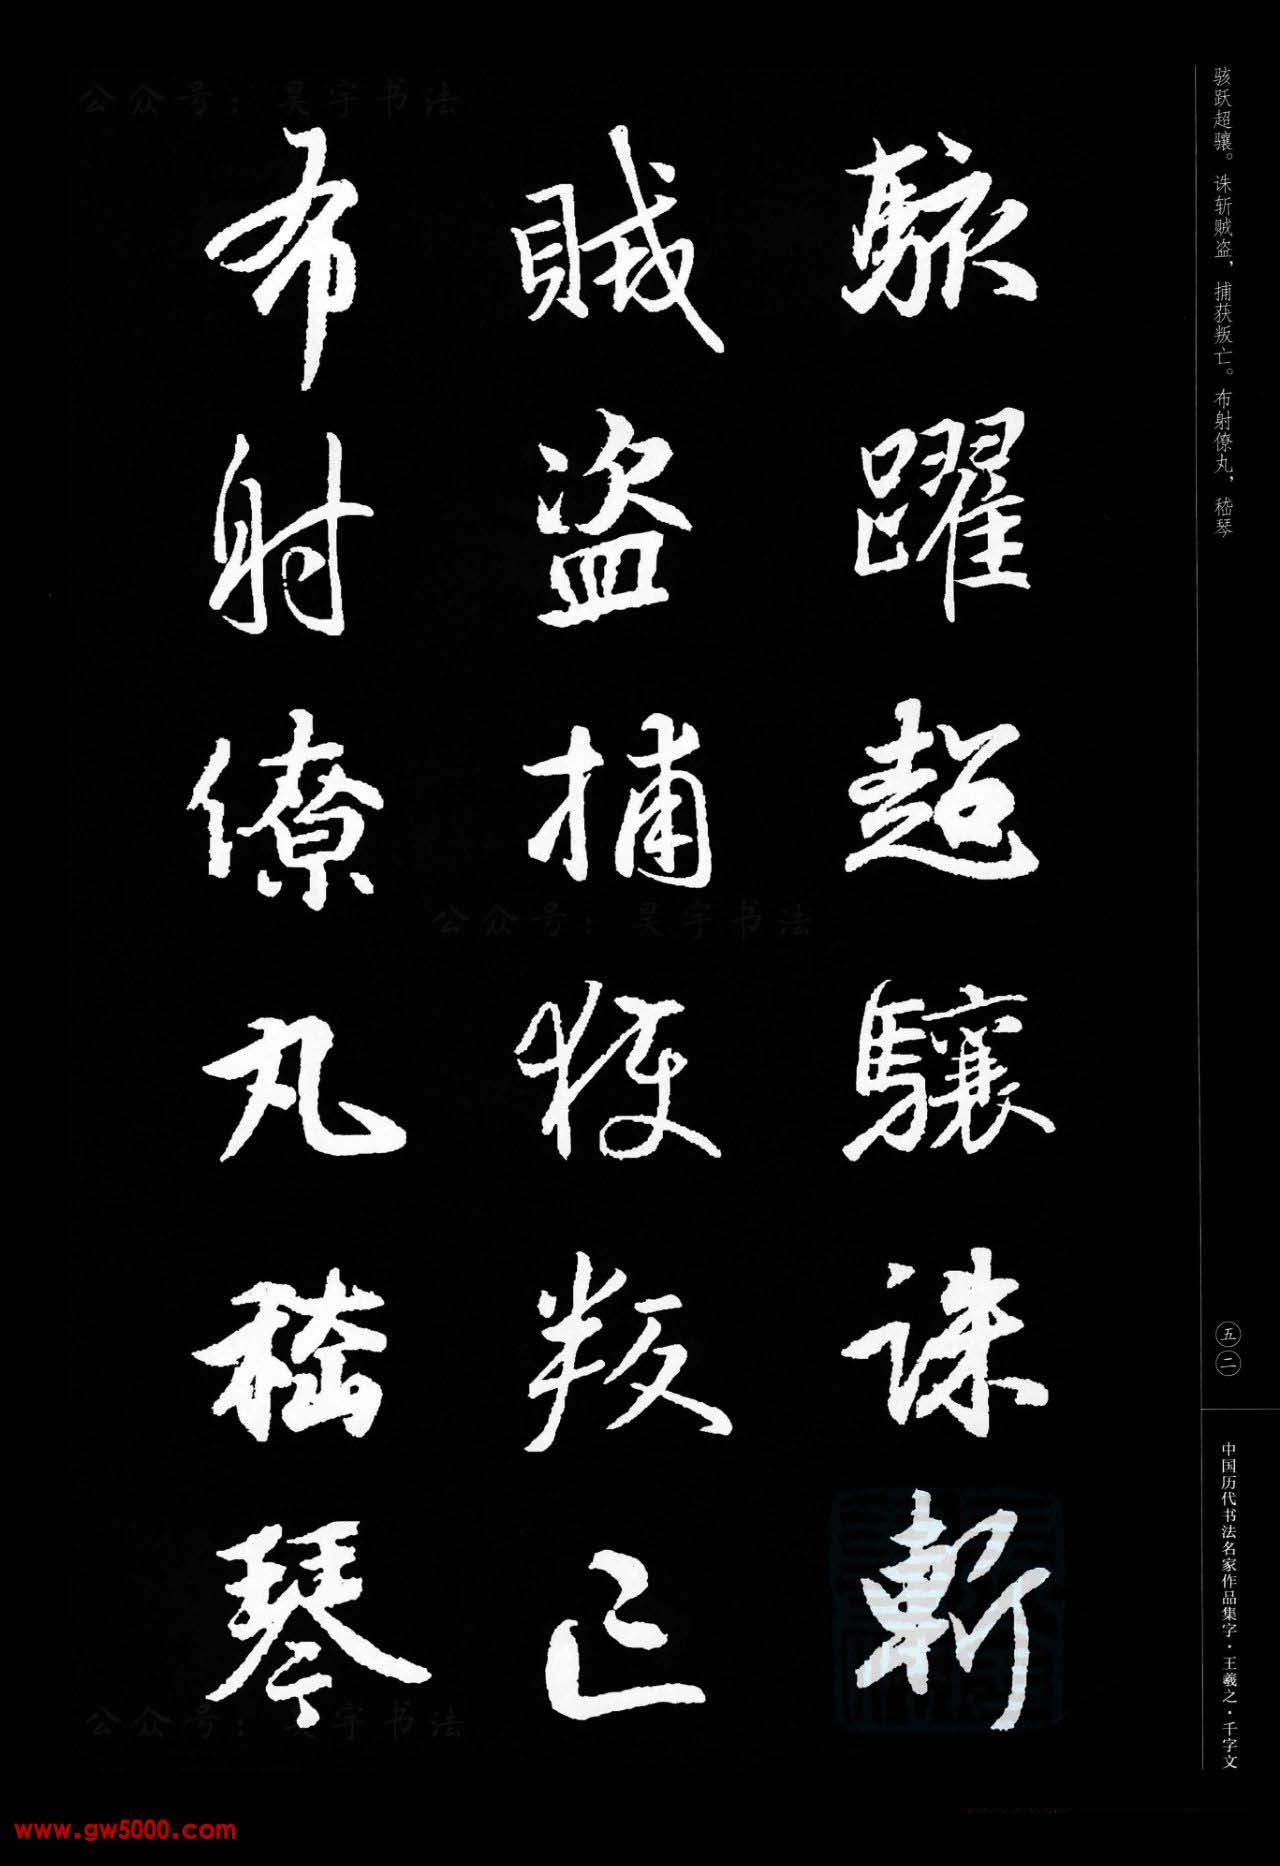 骇跃超骧。诛斩贼盗，捕获叛亡。布射僚丸，嵇琴
駭躍超驤誅斬
賊盗捕獲叛亡
布射僚丸嵇琴
五二
中国历代书法名家作品集字·王羲之·千字文
公众号：昊宇书法
公众号：昊宇书法
公众号：昊宇书法
www.gw5000.com